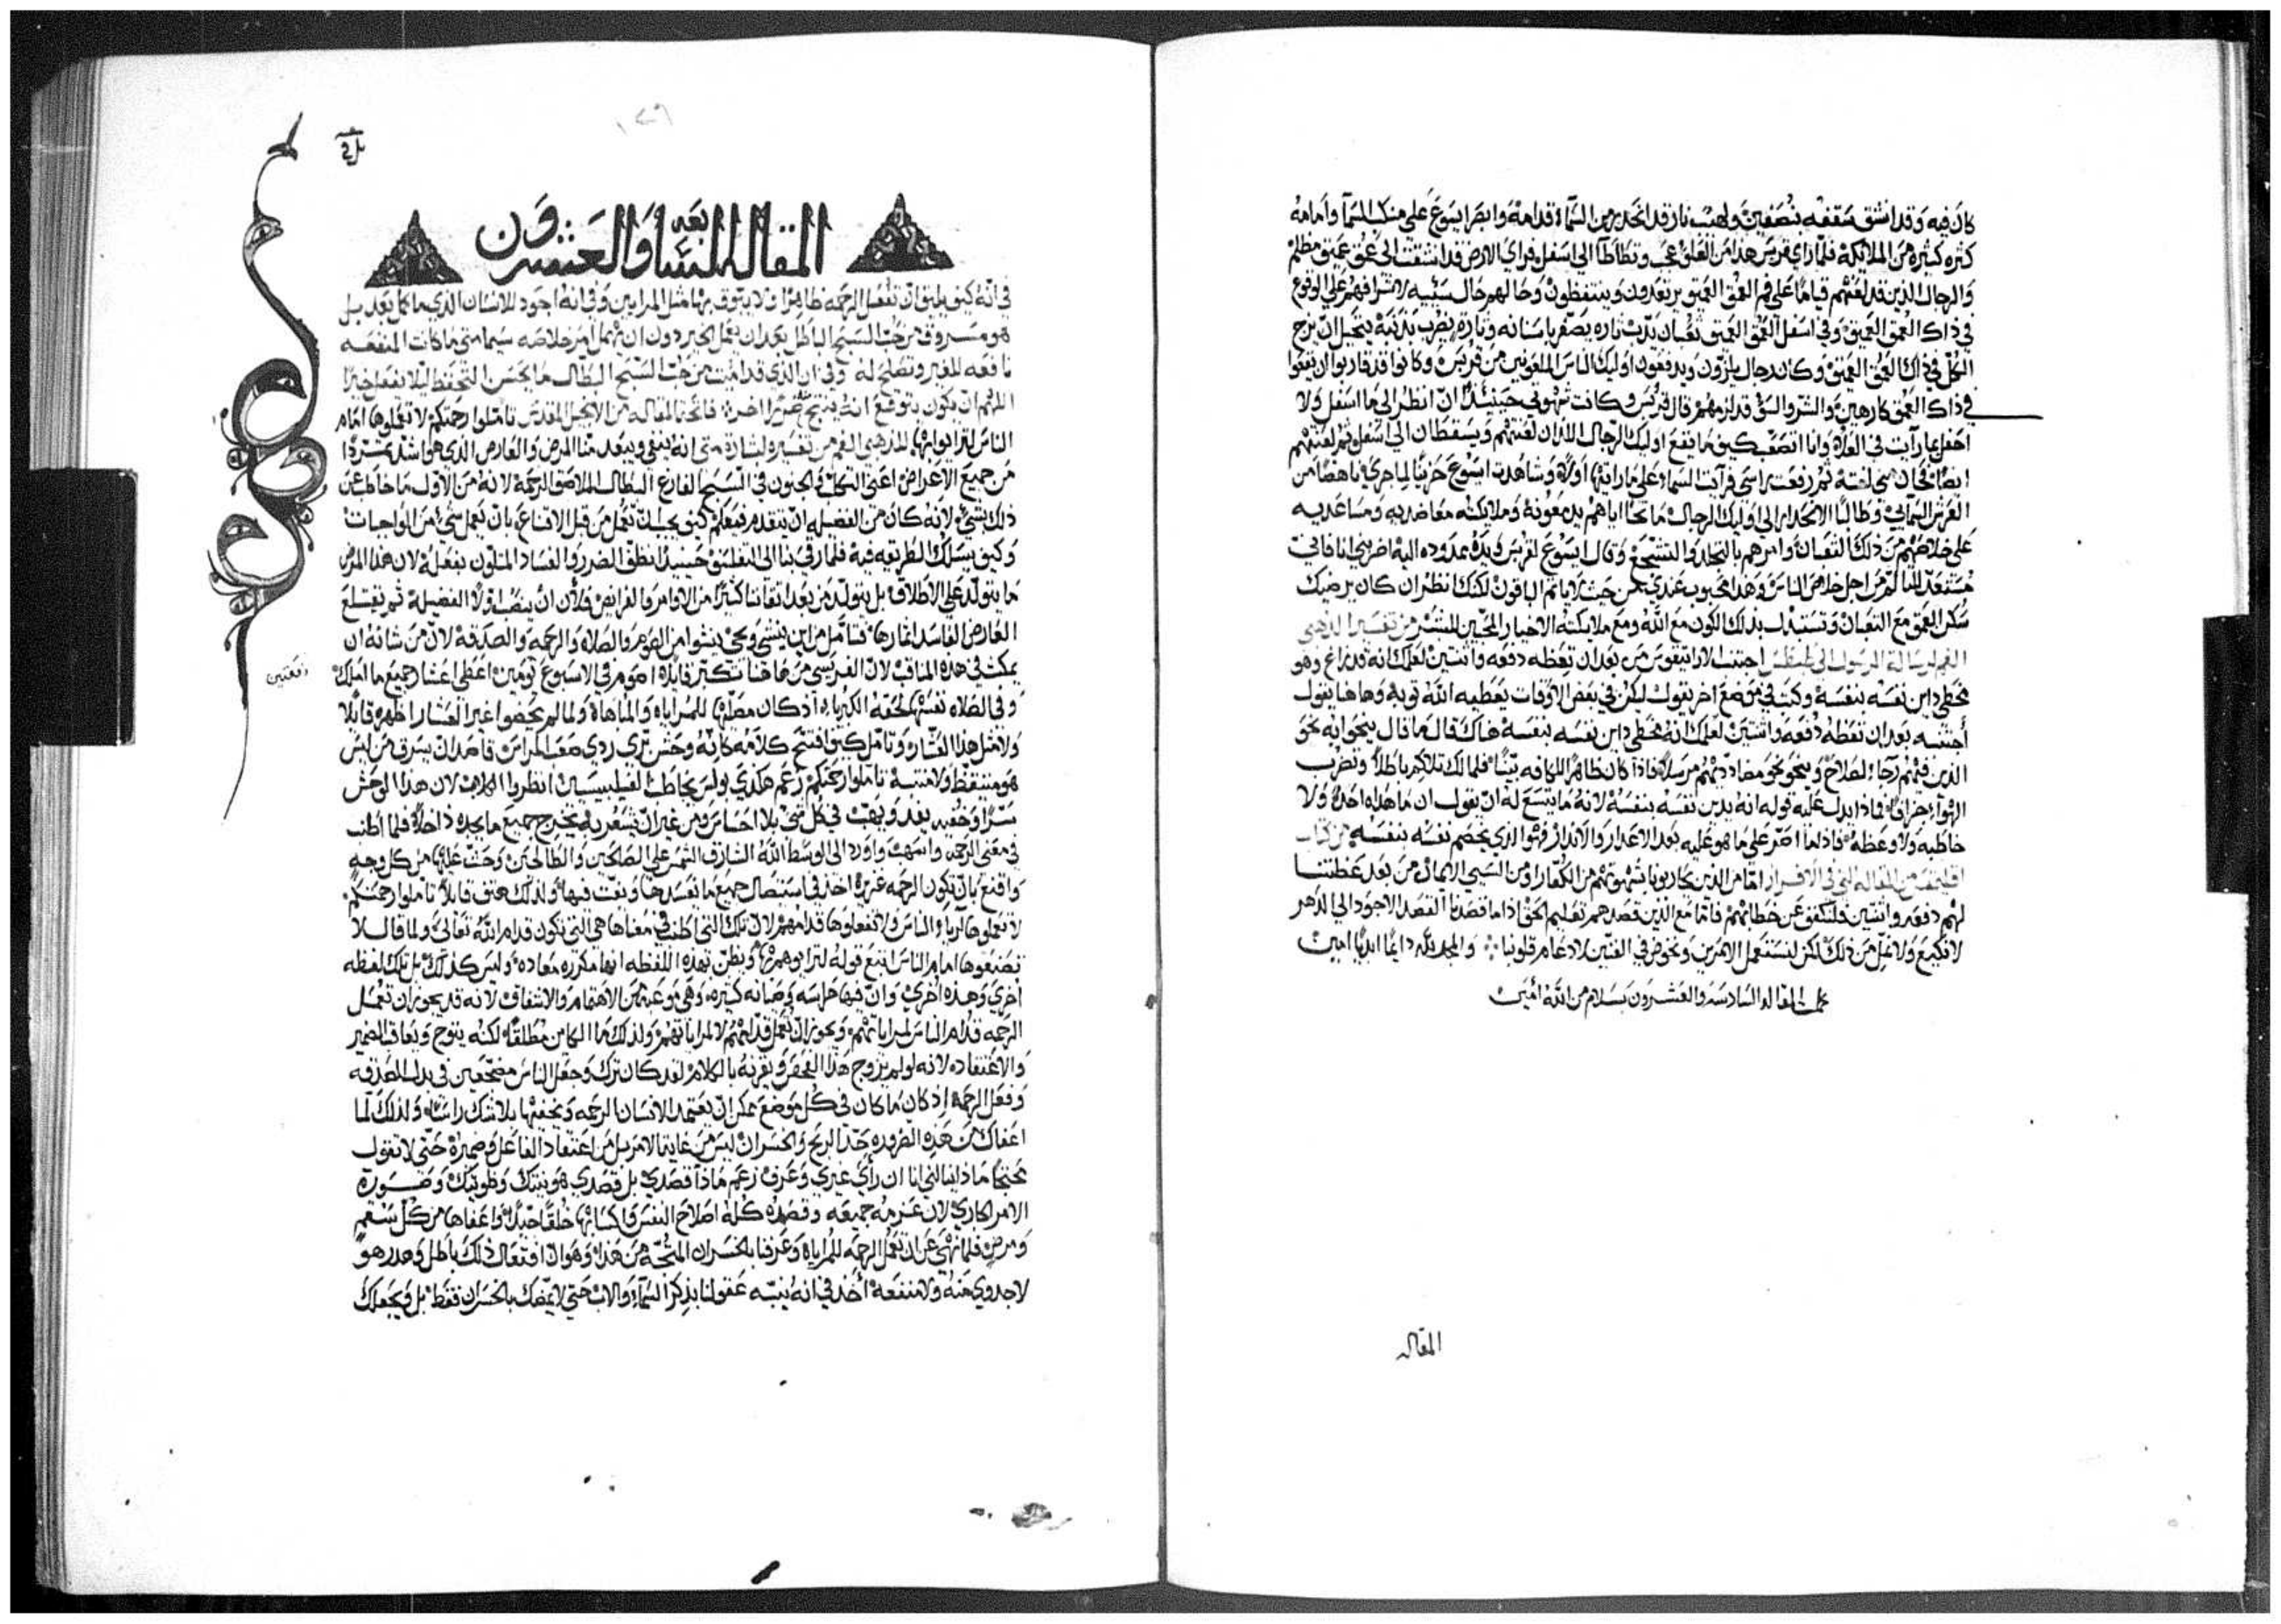 كان فيه وقد انشق سقفه بنصفين ولهيب نار قد انحدر من السماء قدامه وابصر ايسوع على منكب السما وامامه
كثره كثيره من الملائكة فلما راي قربس هذا من العلو عجب وتطاطا الى اسفل فراي الارض قد انشقت الى عمق عميق مظلم
والرجال الذين قد لعنهم قياما على فم العمق العميق يرتعدون وينتفظون وحالهم حال سيئه لاشرافهم على الوقوع
في ذاك العمق العميق وفي اسفل العمق العميق ثعبان يدب تاره يصفر باسنانه وتارة يضرب بذنبه يتحيل ان يزج
الكل في ذاك العمق العميق وكان رجال يلزون ويدفعون اوليك الناس الملعونين من قربس وكانوا قد قاربوا ان يقعوا
في ذاك العمق كارهين والشر والسو قد لزمهم قال قربس وكانت شهوتي حينئذ ان انظر الى ما اسفل ولا
احفل بما رآيت في العلاء وانا اتصعب كيف ما يقع اوليك الرجال اللذان لعنتهم ويسقطان الى اسفل ثم لعنتهم
ايضا ثم رفعت راسي فرآيت السماء على ما رايتها اولا وشاهدت ايسوع حزينا لما جري ناهضا من
العرش السمائي وطالبا الانحدار الى اوليك الرجال مانحا اياهم يد معونة وملايكته معاضديه ومساعديه
على خلاصهم من ذلك الثعبان وامرهم بالتجلد والتشجع وقال ايسوع لقربس ويده ممدوده اليه اضربني انا فانني
مستعد للتالم من اجل خلاص الناس وهذا محبوب عندي من حيث لا ياثم الباقون لكنك انظر ان كان يرضيك
سكن العمق مع الثعبان وتستبدل بذلك الكون مع الله ومع ملايكته الاخيار المحبين للبشر من تفسير الذهبي
الفم لرسالة الرسول الى طيطس اجتنب الاراتيقوس من بعد ان تعظه دفعه واثنتين لعلمك انه قد زاغ وهو
مخطي داين نفسه بنفسه وكتب في موضع اخر يقول ليكن في بعض الاوقات يعطيه الله توبة وهاهنا يقول
أجتنبه بعد ان تعظه دفعه واثنتين لعلمك انه مخطي داين نفسه بنفسه هناك قال ما قال ينحوا به نحو
الذين فيهم رجاء الصلاح وينحو نحو مضاددينهم مرسلا فاذا كان ظاهرا للكافه بينا فلمالك تلاكم باطلا وتضرب
الهوآ جزافا فماذا يدل عليه قوله انه يدين نفسه بنفسه لانه ما يتسع له ان يقول ان ما هداه احد ولا
خاطبه ولا وعظه فاذا ما اصر على ما هو عليه بعد الاعذار والانذار فهوا الذي يخصم نفسه بنفسه من كتاب
اقليمقس من المقاله التي في الافراز امّا من الذين يحاربونا بشهوتهم من الكفار او من السيي الايمان من بعد عظتنا
لهم دفعه واثنتين فلنكفف عن خطابهم فامّا مع الذين قصدهم تعليم الحق اذا ما قصدنا القصد الاجود الى الدهر
لا نكيع ولا نمل من ذلك لكن لنستعمل الامرين ونخوض في الفنين لادعام قلوبنا والمجد لله دايما ابديا امين
كملت المقاله السادسه والعشرون بسلام من الله أمين
المقاله
١٢٩
المقاله السابعه والعشرون
في انه كيف يليق ان تفعل الرحمه ظاهرا ولا يتوق بها مثل المرايين وفي انه اجود للانسان الذي ما كمل بعد بل
هو مسروق من حب السبح الباطل بعد ان يعمل الخير دون ان يهمل امر خلاصه سيما متى ما كانت المنفعه
نافعه للغير وتصلح له وفي ان الذي قد امت من حب السبح البطال ما يحسن التحفظ ليلا يفعل خيرا
اللهم ان يكون يتوقع انه ينتج ضررا اخر فاتحة المقاله من الانجيل المقدس تأملوا رحمتكم لا تعملوها امام
الناس لتراوا بها للذهبي الفم من تفسير بشارة متى انه ينفي ويبعد منا المرض والعارض الذي هو اشد تمردا
من جميع الاعراض اعني التكلب والجنون في السبح الفارغ البطال الملاصق الرحمة لانه من الاول ما خاطب عن
ذلك بشي لانه كان من الفضله ان يتقدم فيعلم كيف يجب ان نعمل من قبل الاقناع بان نعمل شي من الواجبات
وكيف يسلك الطريقه فيه فلما رقي بنا الى التفلسف حينيذ ابطل الضرر والفساد المتلون بفعله لان هذا المرض
ما يتولد على الاطلاق بل يتولد من بعد اتقاننا كثيرا من الاوامر والفرايض فلأن ان ينصبنا اولا الفضيلة ثم نقتلع
العارض الفاسد اثمارها فتامل من اين ينشي ويجي ينشوا من الصوم والصلاه والرحمه والصدقه لان من شانه ان
يمكث في هذه المناقب لان الفريسي من هاهنا تكبر قايلا اصوم في الاسبوع يومين اعطي اعشار جميع ما املك
دفعتين
وفي الصلاه نفسها لحقه الكبرياء اذ كان مصليها للمراياه والمباهاه ولما لم يحضوا غير العشار اظهره قايلا
ولا مثل هذا العشار وتامل كيف افتتح كلامه كانه وحش بري ردي صعب المراس قاصدا ان يسرق من ليس
هو متيقظ ولا منتبه تاملوا رحمتكم زعم هكذي بولس يخاطب الفيلبيسيين انظروا الكلاب لان هذا الوحش
سرا وخفيه يفد ويهب في كل شي بلا احساس ومن غير ان يشعر به يخرج جميع ما يجده داخلا فلما اطنب
في معنى الرحمه واسهب واورد الى الوسط الله الشارق الشمس على الصالحين والطالحين وحث عليها من كل وجه
واقنع بان تكون الرحمه غزيره اخذ في استئصال جميع ما نفسدها ويعث فيها ولذلك هتف قايلا تاملوا رحمتكم
لا تعملوها للرباء والناس ولا تفعلوها قدامهم لان تلك التي اطنب في معناها هي التي تكون قدام الله تعالى ولما قال لا
تصنعوها امام الناس اتبع قوله لتراوهم بها ويظن بهذه اللفظه انها مكرره معاده وليس كذلك بل تلك لفظه
اخري وهذه اخري وان فيها حراسه وصيانه كثيره وهي موعبة من الاهتمام والاشفاق لانه قد يجوز ان تعمل
الرحمه قدام الناس لمراياتهم ويجوز ان تعمل قدامهم لا لمراياتهم ولذلك ما الكاين مطلقا لكنه يتوج ويعاقب الضمير
والاعتقاد لانه لو لم يزوج هذا الفحص ويقرنه بالكلام لقد كان ترك وجعل الناس مضجعين في بدل الصدقه
وفعل الرحمه اذ كان ما كان في كل موضع يمكن ان يعتمد الانسان الرحمه ويخفيها بلا شك راسا ولذلك لما
اعفاك من هذه الضروره حد الربح والخسران ليس من غاية الامر بل من اعتقاد الفاعل وضميره حتى لا تقول
محتجا ماذا ينالني انا ان رأي غيري وعرف زعم ماذا قصدي بل قصدي هو نيتك وطويتك وصورة
الامر الجاري لان عزمه جميعه وقصده كله اصلاح النفس واكسابها خلقا حيدا واعفاها من كل سقم
ومرض فلما نهي عن ان تعمل الرحمه للمراياه وعرفنا بالخسران المتجه من هذا وهو ان افتعال ذلك باطل وهدر هو
لا جدوي منه ولا منفعه أخذ في انه ينبه عقولنا بذكر السماء والاب حتى لا يمضك بالخسران فقط بل ويجعلك